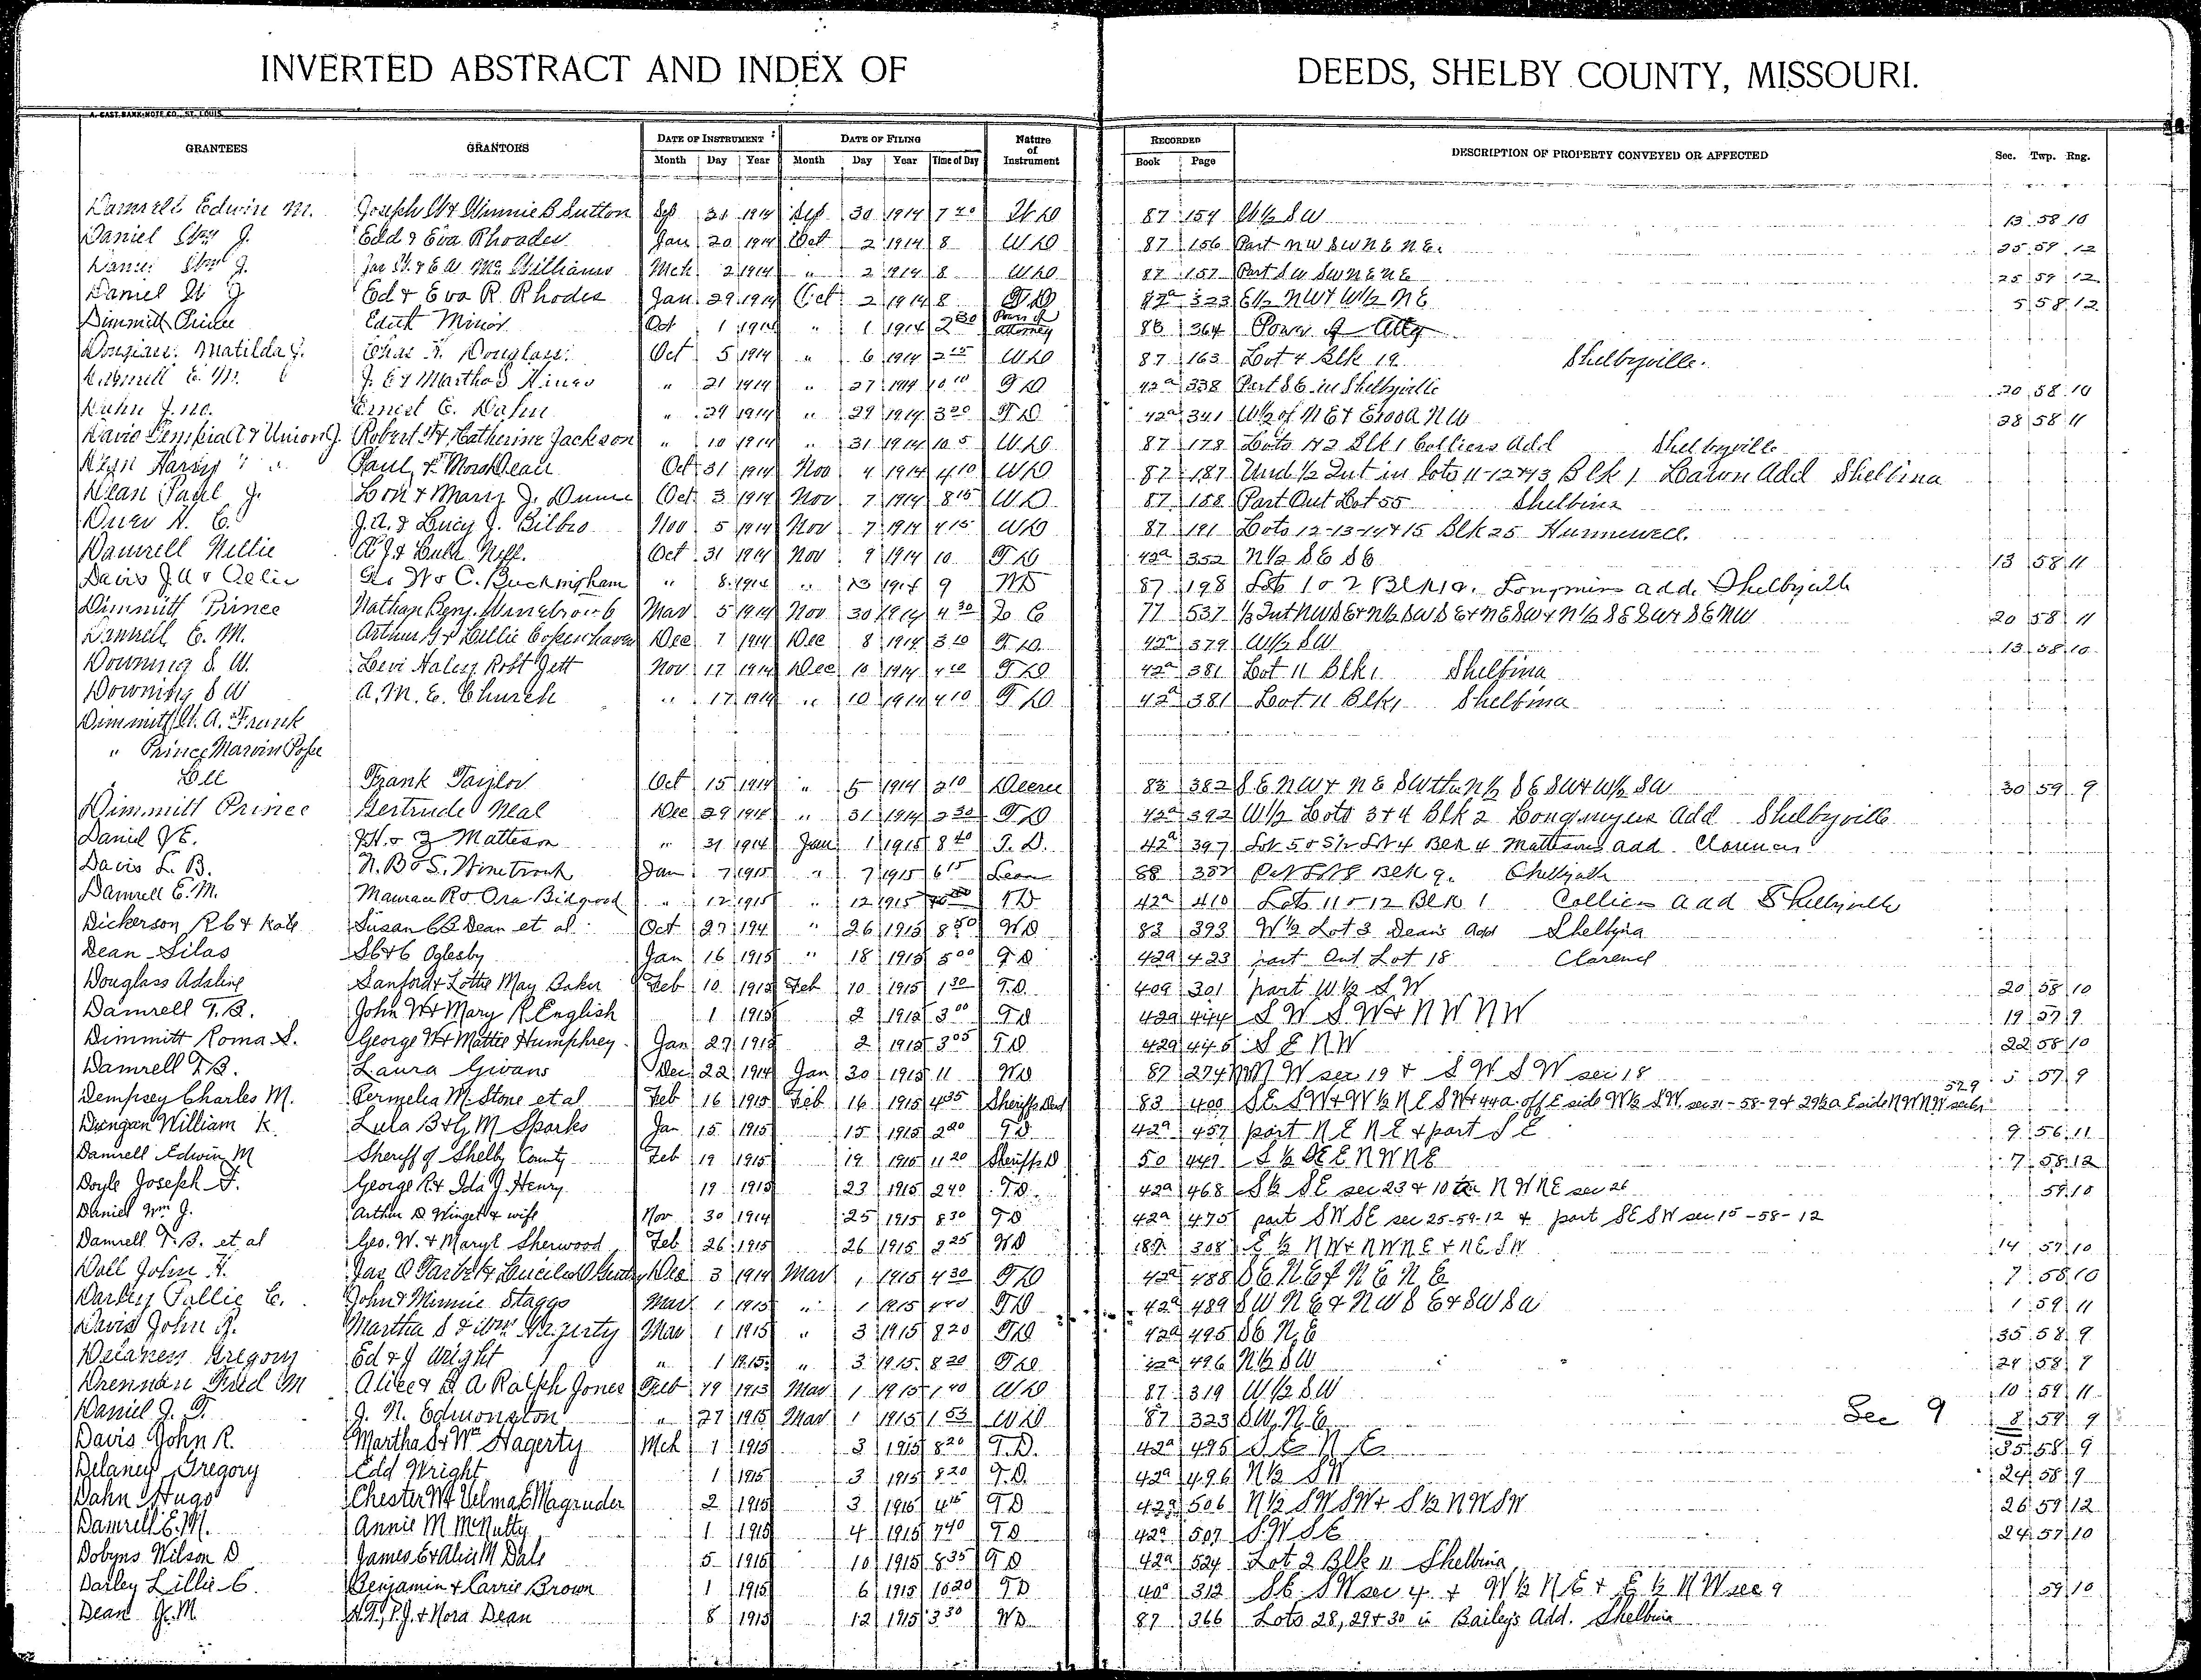 INVERTED ABSTRACT AND INDEX OF DEEDS, SHELBY COUNTY, MISSOURI.
A. GAST BANK NOTE CO., ST. LOUIS
GRANTEES GRANTORS DATE OF INSTRUMENT DATE OF FILING Nature of Instrument RECORDED DESCRIPTION OF PROPERTY CONVEYED OR AFFECTED Sec. Twp. Rng.
Month Day Year Month Day Year Time of Day Book Page
Damrell Edwin M. Joseph W & Winnie B Sutton Sep 1914 Sep 30 1914 W D 87 154 W½ SW 13 58 10
Daniel Wm J. Edd & Eva Rhoades Jan 20 1914 Oct 2 1914 8 W D 87 156 Part NW SW NE NE. 25 59 12
Daniel Wm J. Jas W. & E.A. McWilliams Mch 2 1914 " 2 1914 8 W D 87 157 Part SW SW NE NE 25 59 12
Daniel W J Ed & Eva R. Rhodes Jan 29 1914 Oct 2 1914 8 T D 42a 323 E½ NW & W½ NE 5 58 12
Dimmitt Prince Edith Minor Oct 1 1914 " 1 1914 2 30 Power of Attorney 364 Power of Atty
Douglass Matilda J. Chas Douglass Oct 5 1914 " 6 1914 W D 87 163 Lot 4 Blk 19 Shelbyville.
Damrell E. M. J. E & Martha S Hines " 21 1914 " 27 1914 10 10 T D 42a 338 Part SE in Shelbyville 20 58 10
Dahn Jno. Ernest E. Dahn " 29 1914 " 29 1914 3 20 T D 42a 341 W½ of NE & E100a NW 28 58 11
Robert & Catherine Jackson " 10 1914 " 31 1914 10 5 W D 87 178 Lots 1 & 2 Blk 1 Colliers Add Shelbyville
Dean Harry Paul & Dean Oct 31 1914 Nov 4 1914 4 10 W D 87 187 Und ½ Int in lots 11-12 & 13 Blk 1 Add Shelbina
Dean Paul J. Lon & Mary J. Dunn Oct 3 1914 Nov 7 1914 8 15 W D 87 188 Part Out Lot 55 Shelbina
H. E. J. A. & Lucy J. Bilbro Nov 5 1914 Nov 7 1914 4 15 W D 87 191 Lots 12-13-14 & 15 Blk 25 Hunnewell.
Damrell Nellie A. J & Lula Neff. Oct 31 1914 Nov 9 1914 10 T D 42a 352 N½ SE SE 13 58 11
Davis J. A & Celia Geo W & C. Buckingham " 8 1914 " 13 1914 9 WD 87 198 Lots 1 & 2 Blk Add. Shelbyville
Dimmitt Prince Nathan Benj. Mar 5 1914 Nov 30 1914 4 30 77 537 ½ Int NW SE & N½ SW SE & NE SW & N½ SE SW & SE NW 20 58 11
Damrell E. M. Arthur G & Lillie Copenhaver Dec 7 1914 Dec 8 1914 3 10 T D 42a 379 W½ SW 13 58 10
Downing S. W. Levi Haley Robt Jett Nov 17 1914 Dec 10 1914 4 10 T D 42a 381 Lot 11 Blk 1 Shelbina
Downing S W A. M. E. Church " 17 1914 " 10 1914 4 10 T D 42a 381 Lot 11 Blk 1 Shelbina
Dimmitt W. A. Frank
" Prince Marvin Pope
Lee Frank Taylor Oct 15 1914 " 5 1914 2 10 Decree 83 382 SE NW & NE SW & N½ SE SW & W½ SW 30 59 9
Dimmitt Prince Gertrude Neal Dec 29 1914 " 31 1914 2 30 T D 42a 392 W½ Lots 3 & 4 Blk 2 Add Shelbyville
Daniel J E. J H. & Z Matteson " 31 1914 Jan 1 1915 8 40 T. D. 42a 397 Lot 5 & S½ Lot 4 Blk 4 Mattesons add. Clarence
Davis L. B. N. B & S. Winetrout Jan 7 1915 " 7 1915 6 15 88 Blk 9. Shelbyville
Damrell E. M. R & Ora Bidgood " 12 1915 " 12 1915 TD 42a 410 Lots 11 & 12 Blk 1 Colliers add Shelbyville
Dickerson R C & Kate Susan C B Dean et al Oct 27 194 " 26 1915 8 30 WD 83 393 W½ Lot 3 Dean's Add Shelbina
Dean Silas S C & G Oglesby Jan 16 1915 " 18 1915 5 00 T D 42a 423 part Out Lot 18 Clarence
Douglass Adaline Sanford & Lottie May Baker Feb 10 1915 Feb 10 1915 1 30 T.D. 40a 301 part W½ SW 20 58 10
Damrell T. B. John W & Mary R English 1 1915 2 1915 3 00 T D 42a 444 S W S W & N W N W 19 57 9
Dimmitt Roma S. George W & Mattie Humphrey Jan 27 1915 2 1915 3 05 T D 42a 445 S E N W 22 58 10
Damrell T B. Laura Givans Dec 22 1914 Jan 30 1915 11 WD 87 274 NW N W sec 19 & S W S W sec 18 57 9
Dempsey Charles M. Permelia M. Stone et al Feb 16 1915 Feb 16 1915 4 35 Sheriffs Deed 83 400 SE SW & W½ NE SW & 44a off E side W½ SW sec 31-58-9 & 29½a E side NW NW sec 6
Dungan William K. Lula B & G. M Sparks Jan 15 1915 15 1915 2 00 T D 42a 457 part NE NE & part SE 9 56 11
Damrell Edwin M Sheriff of Shelby County Feb 19 1915 19 1915 11 20 Sheriffs D 50 447 7 58 12
Doyle Joseph F. George R & Ida J. Henry 19 1915 23 1915 2 40 T.D. 42a 468 S½ SE sec 23 & 10a NWNE sec 26 59 10
Daniel Wm J. Arthur D Winget & wife Nov 30 1914 25 1915 8 30 TD 42a 475 part SWSE sec 25-59-12 & part SESW sec 15-58-12
Damrell T. B. et al Geo. W. & Mary E Sherwood Feb 26 1915 26 1915 2 25 WD 87 308 E½ NW & NWNE & NESW 14 57 10
Doll John H. Jas O & Lucile Dec 3 1914 Mar 1 1915 4 30 TD 42a 488 SE NE & NE NE 7 58 10
Darley Tallie E. John & Minnie Staggs Mar 1 1915 " 1 1915 4 40 TD 42a 489 SW NE & NW SE & SW SW 1 59 11
Davis John R. Martha S & Wm Hagerty Mar 1 1915 " 3 1915 8 20 TD 42a 495 SE NE 35 58 9
Delaney Gregory Ed & J Wright " 1 1915 " 3 1915 8 20 TD 42a 496 N½ SW 24 58 9
Drennan Fred M Alice & B. A Ralph Jones Feb 19 1915 Mar 1 1915 1 40 WD 87 319 W½ SW 10 59 11
Daniel J. T. J. N. Edmonston " 27 1915 Mar 1 1915 1 53 WD 87 323 SW NE Sec 9 8 59 9
Davis John R. Martha S & Wm Hagerty Mch 1 1915 3 1915 8 20 T.D. 42a 495 S E N E 35 58 9
Delaney Gregory Edd Wright 1 1915 3 1915 8 20 T.D. 42a 496 N½ SW 24 58 9
Dahn Hugo Chester W & Velma E Magruder 2 1915 3 1915 4 15 TD 42a 506 N½ SW SW & S½ NW SW 26 59 12
Damrell E. M. Annie M McNutty 1 1915 4 1915 7 40 TD 42a 507 SW SE 24 57 10
Dobyns Wilson D James E & Alice M Dale 5 1915 10 1915 8 35 TD 42a 524 Lot 2 Blk 11 Shelbina
Darley Lillie E. Benjamin & Carrie Brown 1 1915 6 1915 10 20 TD 40a 312 SE SW sec 4 & W½ NE & E½ NW sec 9 59 10
Dean J. M. A. T., P. J. & Nora Dean 8 1915 12 1915 3 30 WD 87 366 Lots 28, 29 & 30 in Bailey's Add. Shelbina